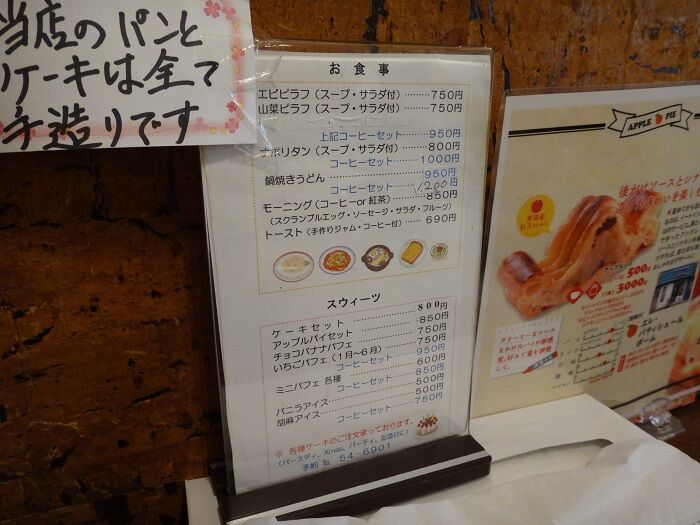 当店のパンと
ケーキは全て
手造りです
お食事
エビピラフ（スープ・サラダ付）………750円
山菜ピラフ（スープ・サラダ付）………750円
上記コーヒーセット………950円
ナポリタン（スープ・サラダ付）………800円
コーヒーセット………1000円
鍋焼きうどん………950円
コーヒーセット………1,200円
モーニング（コーヒーor紅茶）………850円
（スクランブルエッグ・ソーセージ・サラダ・フルーツ）
トースト（手作りジャム・コーヒー付）………690円
スウィーツ
ケーキセット………800円
アップルパイセット………850円
チョコバナナパフェ………750円
いちごパフェ（1月～6月）………750円
コーヒーセット………950円
ミニパフェ 各種………600円
コーヒーセット………850円
バニラアイス………500円
胡麻アイス………500円
コーヒーセット………750円
※ 各種ケーキのご注文承っております。
（バースディ、Xmas、パーティ、記念日に）
予約 ℡ 54-6901
APPLE PIE
後がけソースとシナ
アップルパイ
500円
3000円
エレ・
パティシェール
ボーム